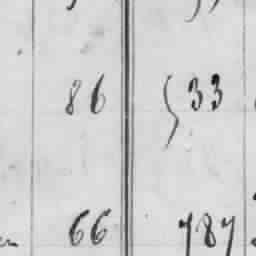 86 533
66 787